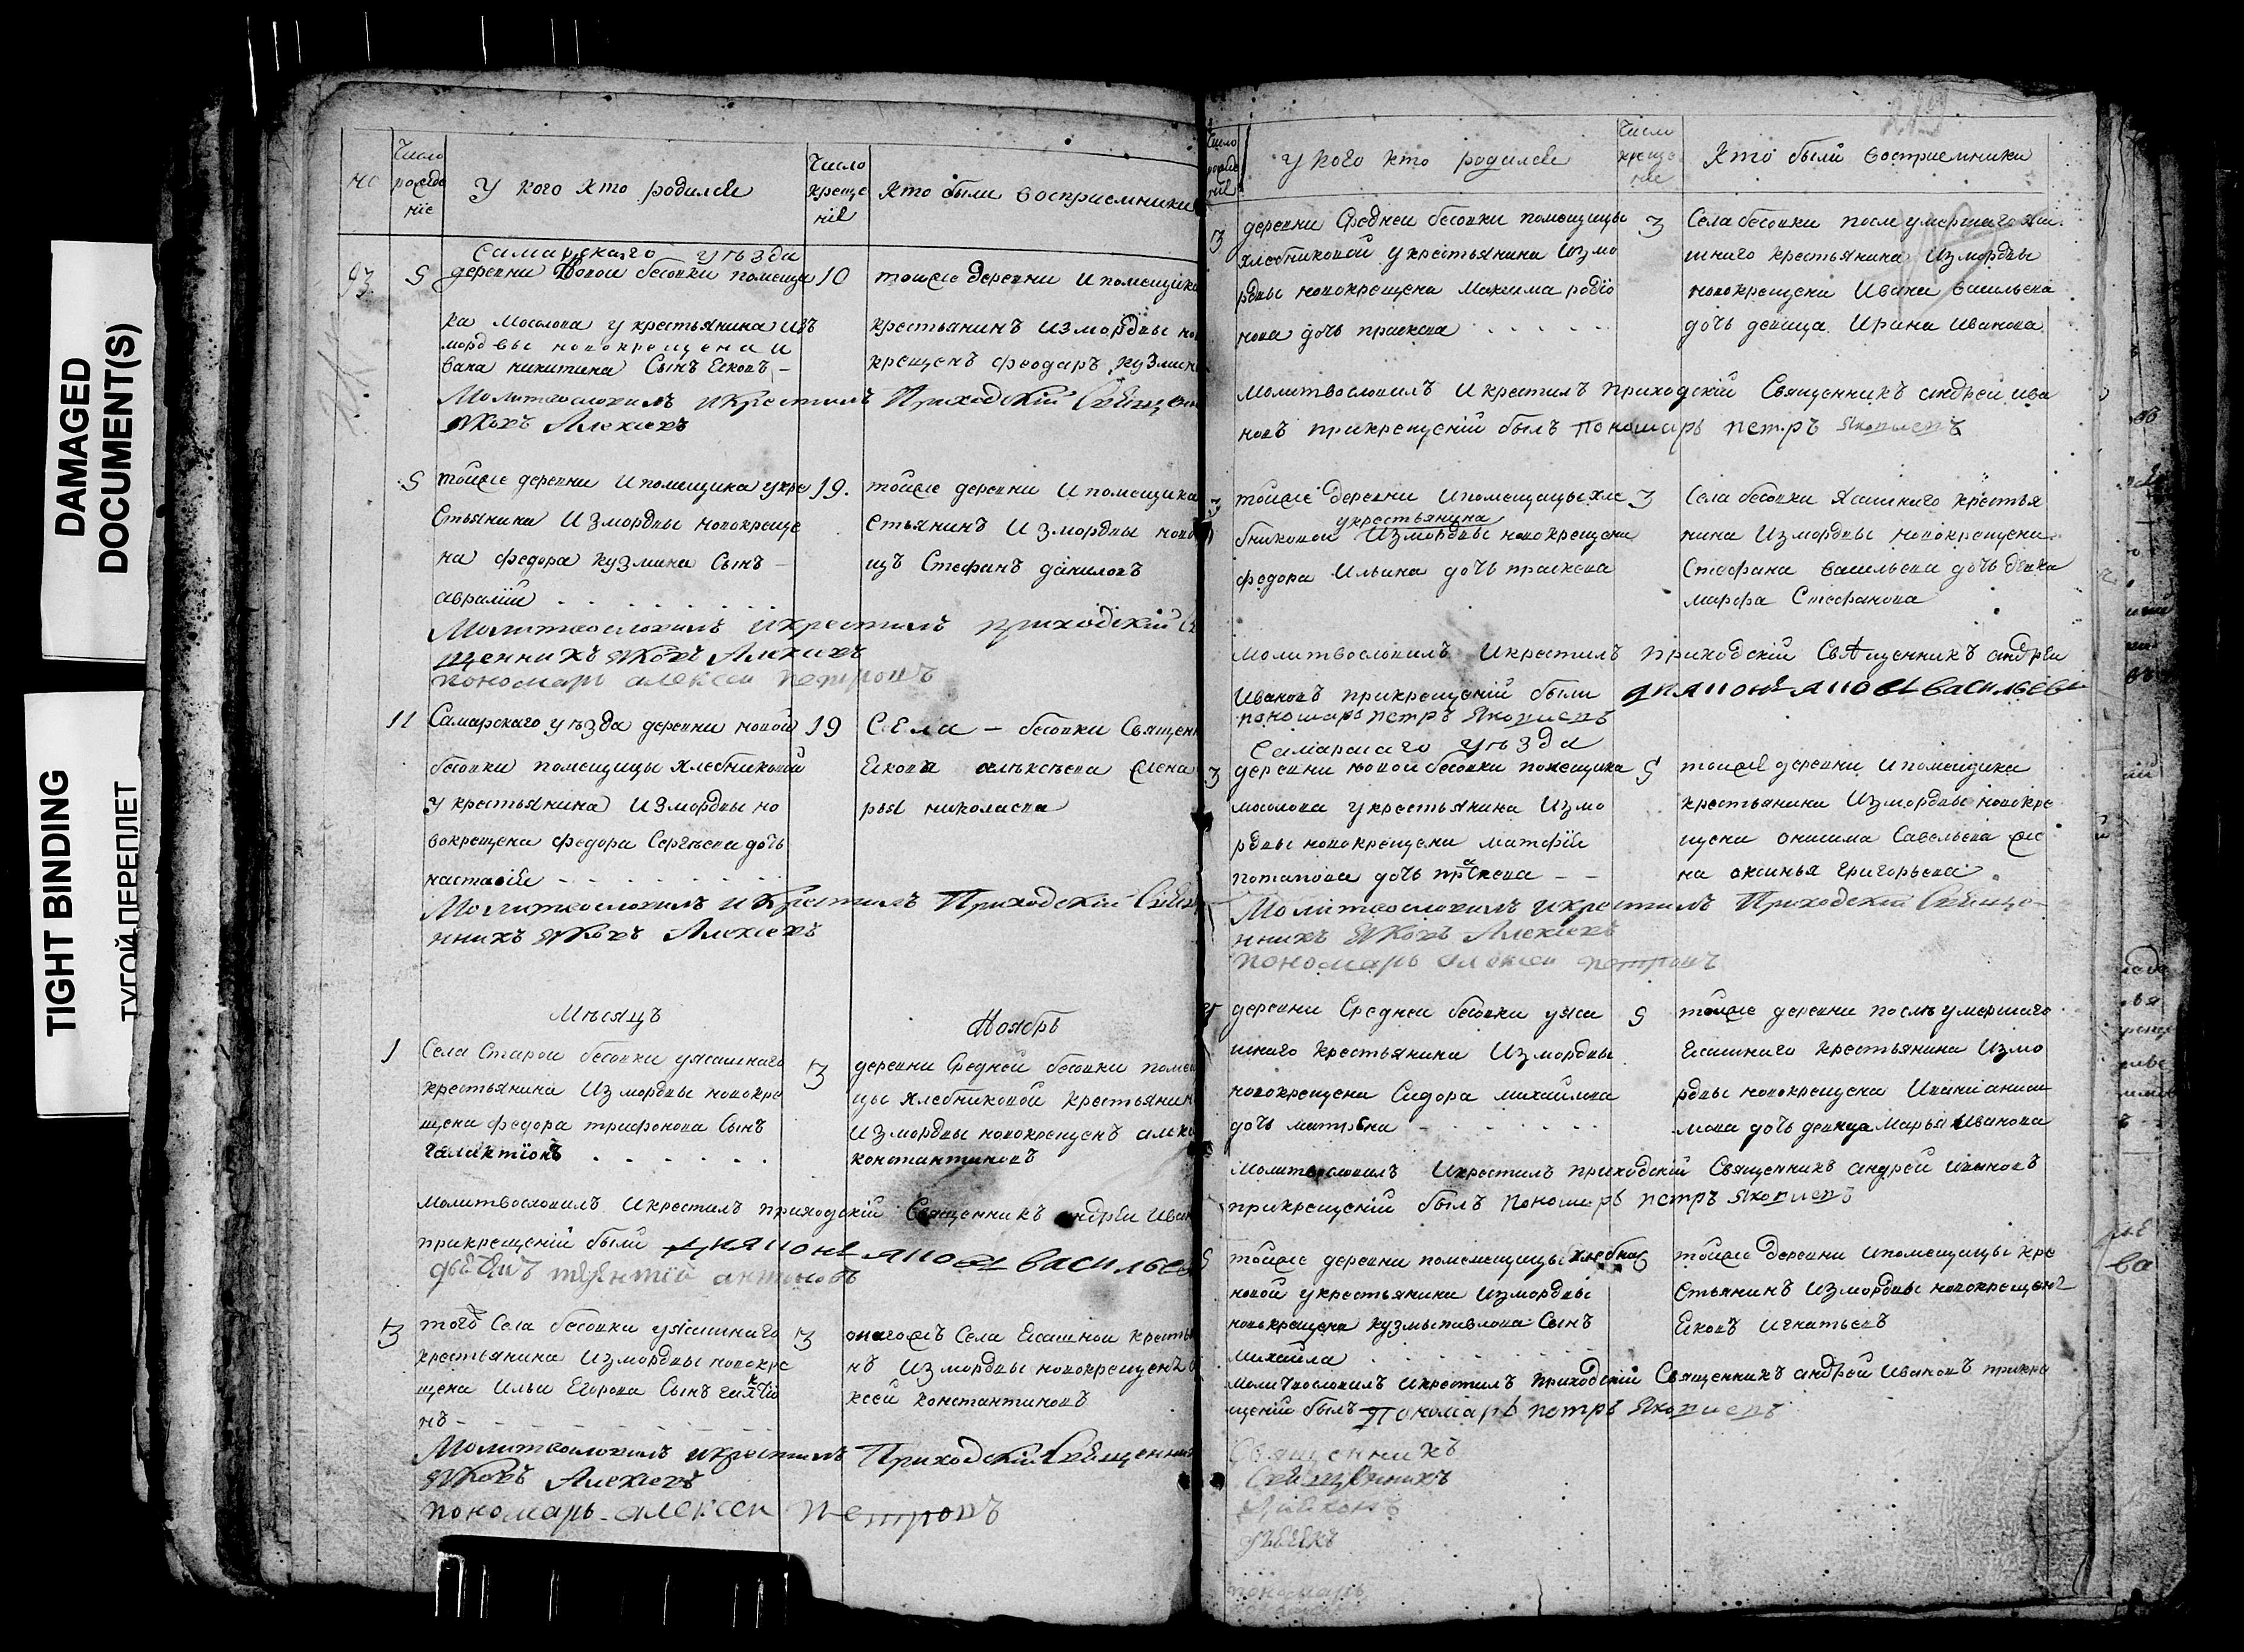 DAMAGED
DOCUMENT(S)
TIGHT BINDING
ТУГОЙ ПЕРЕПЛЕТ
Число рожденіе
У кого кто родилсѧ
Число крещеніѧ
Кто были восприемники
Самарскаго уѣзда
5 деревни Новой бесовки помещи 10 тоиже деревни и помещика
ка Мосолова у крестьянина изъ
мордвы новокрещена и
вана никитина Сынъ Еков –
крестьянинъ из мордвы но
крещенъ феодаръ кузмин
Молитвословилъ и крестилъ Приходскїй Свѧщен
Яковъ Алеѯіевъ
5 тоиже деревни и помещика у кре 19. тоиже деревни и помещика
стьянина из мордвы новокреще
на федора кузмина Сынъ –
аврамїи
стьянинъ из мордвы ново
Стефанъ даниловъ
Молитвословилъ и крестилъ приходскїй
щенникъ Яковъ Алеѯіевъ
пономарь алексеи петровъ
11 Самарскаго уѣзда деревни новой 19 Села – бесовки Священ
бесовки помещицы хлебниковой
у крестьянина из мордвы но
вокрещена федора Сергѣева дочь
настасїѧ
Екова алѣксѣева жена
рья николаева
Молитвословилъ и крестилъ Приходскїй
нникъ Яковъ Алеѯіевъ
Мѣсяцъ Ноябрь
1 Села Старой бесовки у ясашнаго
крестьянина Из мордвы новокре
щена федора трифонова Сынъ
галактїонъ
3 деревни Средней бесовки поме
цы хлебниковой крестьянин
из мордвы новокрещенъ алек
константиновъ
Молитвословилъ и крестилъ приходскїй Священникъ андрѣи Иван
прикрещенїй были дияконъ яков василье
3 того Села бесовки у ясашнаго
крестьянина из мордвы новокре
щена Ильи Егорова Сынъ
нъ –
3 оногожъ Села Ясашной кресть
нъ из мордвы новокрещенъ
ксей константиновъ
Молитвословилъ и крестилъ Приходскїй Свѧщенни
Яковъ Алеѯіевъ
пономарь алексеи петровъ
У кого кто родилсѧ
Число крещеніе
Кто были восприемники
3 деревни Средней бесовки помещицы
хлебниковой у крестьянина из мо
рдвы новокрещена Максима родїо
нова дочь прасковя
3 Села бесовки после умершаго яса
шнаго крестьянина из мордвы
новокрещена Ивана васильева
дочь девица Ирина Иванова
Молитвословилъ и крестилъ приходскїй Священникъ андреи ива
новъ прикрещенїй былъ пономарь петръ Яковлевъ
3 тоиже деревни и помещицы хле
у крестьянина
бниковой из мордвы новокрещена
федора Ильина дочь прасковя
3 Села бесовки Ясашнаго крестья
нина из мордвы новокрещена
Стефана васильева дочь девка
марфа Стефанова
Молитвословилъ и крестилъ приходскїй Священникъ андрѣи
Ивановъ прикрещенїй были дияконъ яков васильевъ
пономарь петръ Яковлевъ
Самарскаго уѣзда
3 деревни новой бесовки помещика
мосолова у крестьянина из мо
рдвы новокрещена матфїѧ
потапова дочь прасковя
5 тоиже деревни и помещика
крестьянина из мордвы новокре
щена онисима Савельева же
на аксинья григорьева
Молитвословилъ и крестилъ Приходскїй Свѧще
нникъ Яковъ Алеѯіевъ
пономарь алексеи петровъ
деревни Средней бесовки у яса
шнаго крестьянина из мордвы
новокрещена Сидора михайлова
дочь матрена
5 тоиже деревни послѣ умершаго
Ясашнаго крестьянина из мо
рдвы новокрещена
дочь девица Марья Иванова
Молитвословилъ и крестилъ приходскїй Священникъ андрей ивановъ
прикрещенїй былъ пономарь петръ Яковлевъ
5 тоиже деревни помещицы хлебни
ковой у крестьянина из мордвы
новокрещена кузмы павлова Сынъ
михайла
тоиже деревни и помещицы кре
стьянинъ из мордвы новокрещенъ
Еков игнатьевъ
Молитвословилъ и крестилъ приходскїй Священникъ андрей Ивановъ прикре
щенїй былъ пономарь петръ Яковлевъ
Священникъ
Свѧщенникъ
пономарь